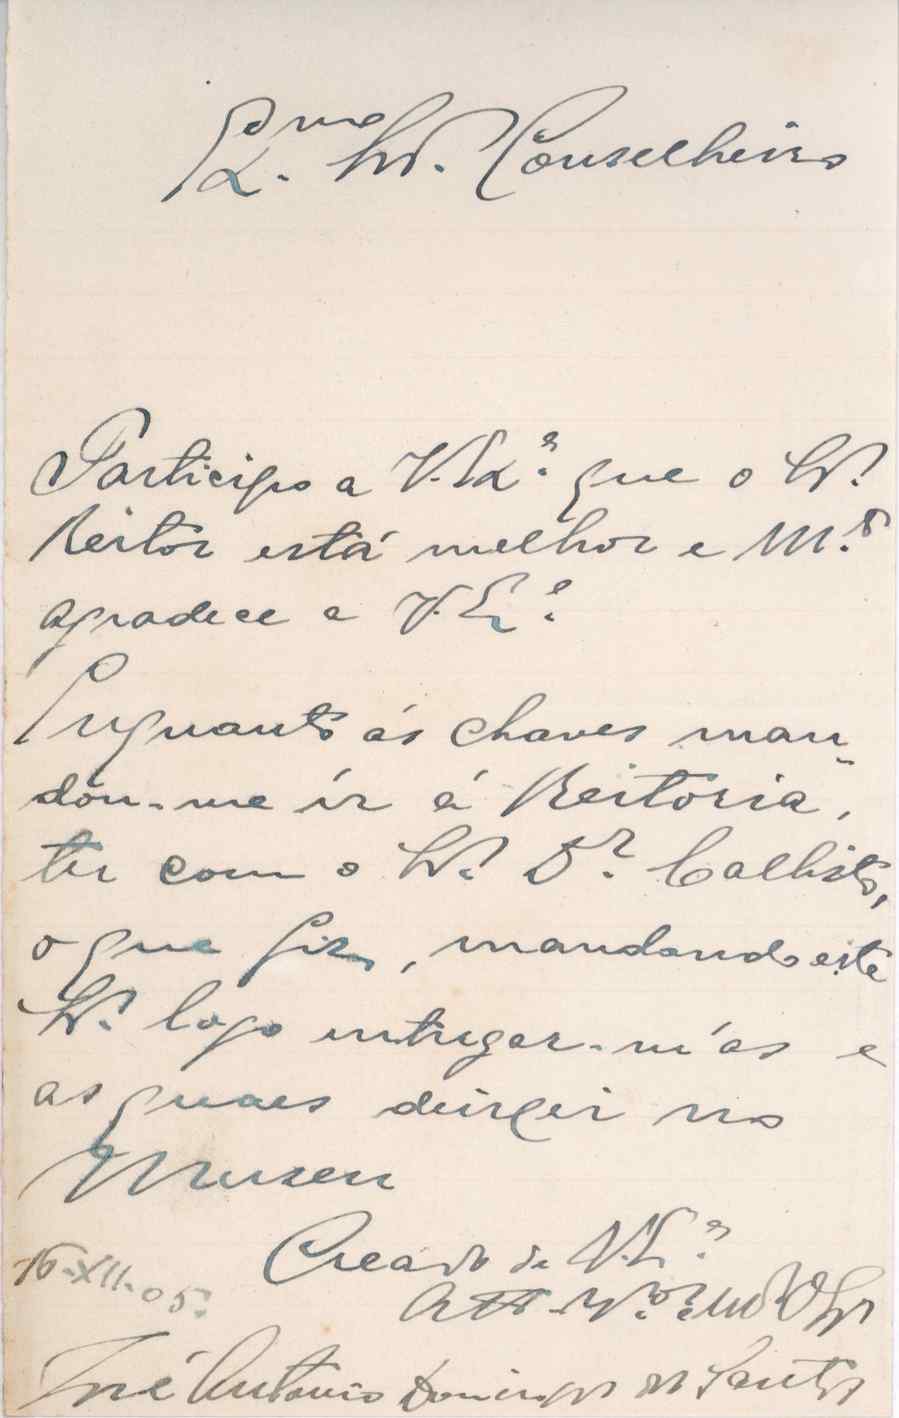 Ex.mo Sr. Conselheiro
Participo a V. Ex.ª que o Sr.
Reitor está melhor e M.to
agradece a V. E.ª
Enquanto ás chaves man-
dou-me ír á Reitoria,
ter com o Sr. Dr. Callisto,
o que fiz, mandando este
Sr. logo entregar-m'as e
as quaes deixei no
Museu
Creado de V. E.ª
Att.
16-XII-05.
José Antonio Domingos dos Santos